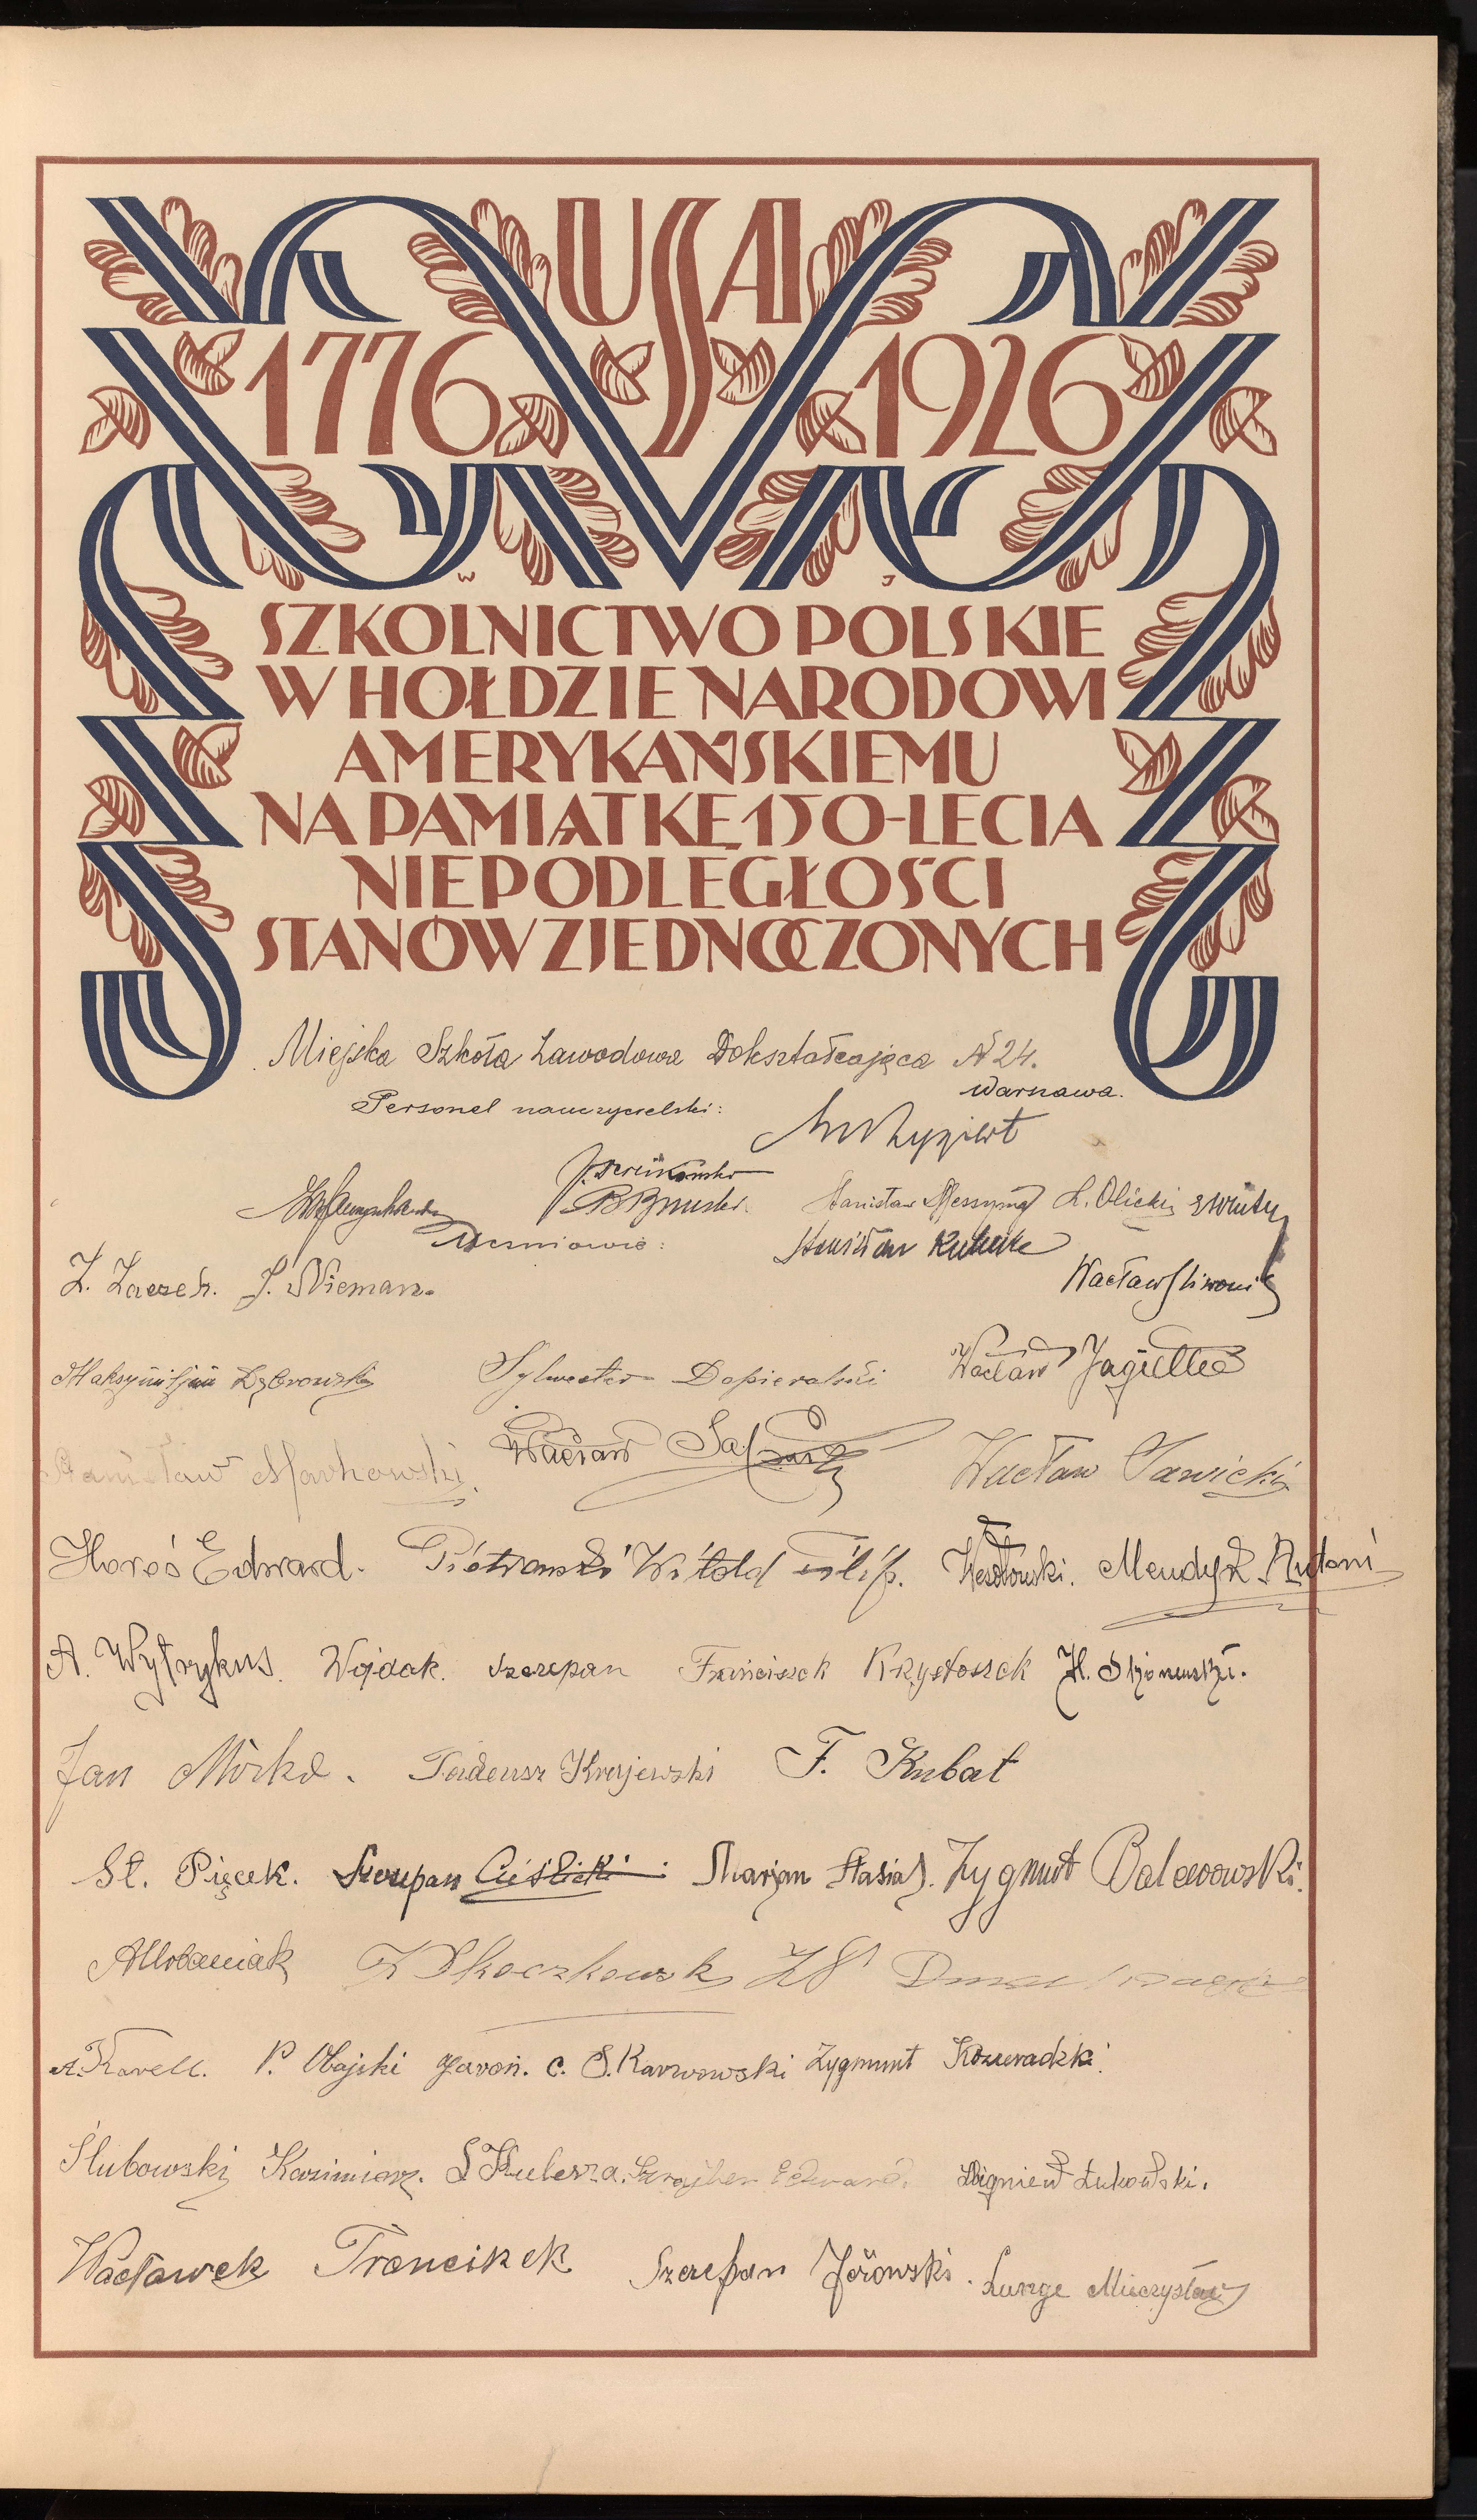 USA
1776 1926
W J
SZKOLNICTWO POLSKIE
W HOŁDZIE NARODOWI
AMERYKAŃSKIEMU
NA PAMIĄTKĘ 150-LECIA
NIEPODLEGŁOŚCI
STANÓW ZJEDNOCZONYCH
Miejska Szkoła Zawodowa Dokształcająca № 24.
Warszawa.
Personel nauczycielski:
Stanisław Messyng L. Olicki
Uczniowie:
Stanisław
Z. Zaczek. J. Nieman.
Wacław Śliwonik
Maksymiljan Dąbrowski Sylwester Dopieralski Wacław Jagiełło
Stanisław Markowski Wacław Wacław Sawicki
Horoś Edward. Piotrowski Witold filip. Wesołowski. Mendyk Antoni
A. Wytrykus. Wojdak. Szczepan Franciszek Krystoszek H.
Jan Mirka. Tadeusz Krajewski F. Kubat
St. Pięcek. Szczepan Cieślicki Marjan Stasiak. Zygmunt Balcerowski.
A Urbaniak Skoczkowski
A. Karell. P. Obajski Jaroń. C. S. Karwowski Zygmunt
Ślubowski Kazimierz. S Kulesza. Szrajber Edward. Zbigniew Łukowski.
Wacławek Franciszek Szczepan Jeżowski. Lunge Mieczysław